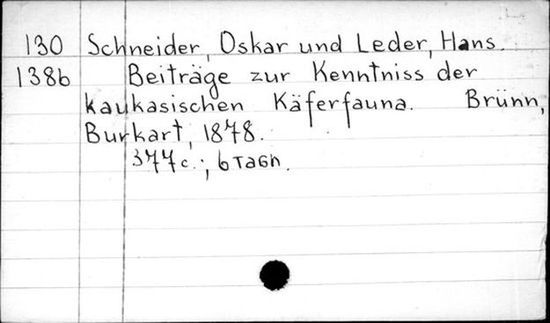 130 Schneider, Oskar und Leder, Hans.
138b Beiträge zur Kenntniss der
kaukasischen Käferfauna. Brünn,
Burkart, 1878.
377 c.; 6 табл.